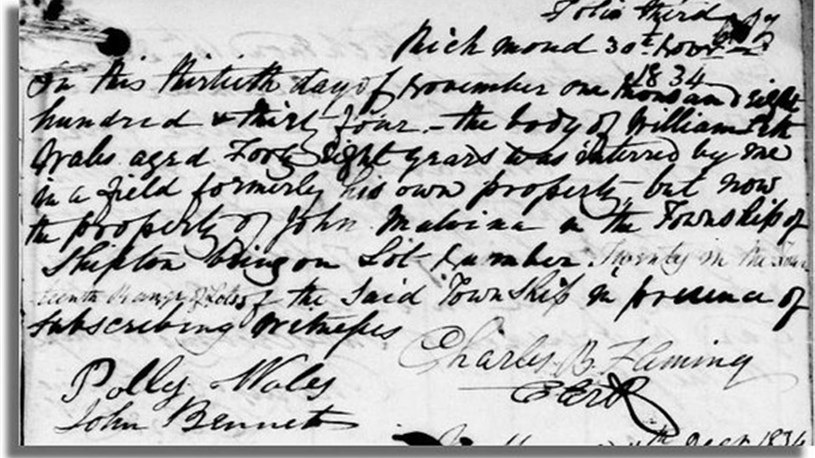 Folio third
Richmond 30th Novr
1834
On this thirtieth day of November one thousand eight
hundred & thirty four - the body of William
Wales aged Forty Eight years was interred by me
in a field formerly his own property but now
the property of John Malvina in the Township of
Shipton being on Lot Number Twenty in the Four
teenth Range of Lots of the said Township in presence of
subscribing Witnesses
Charles B. Fleming
Polly Wales
John Bennett